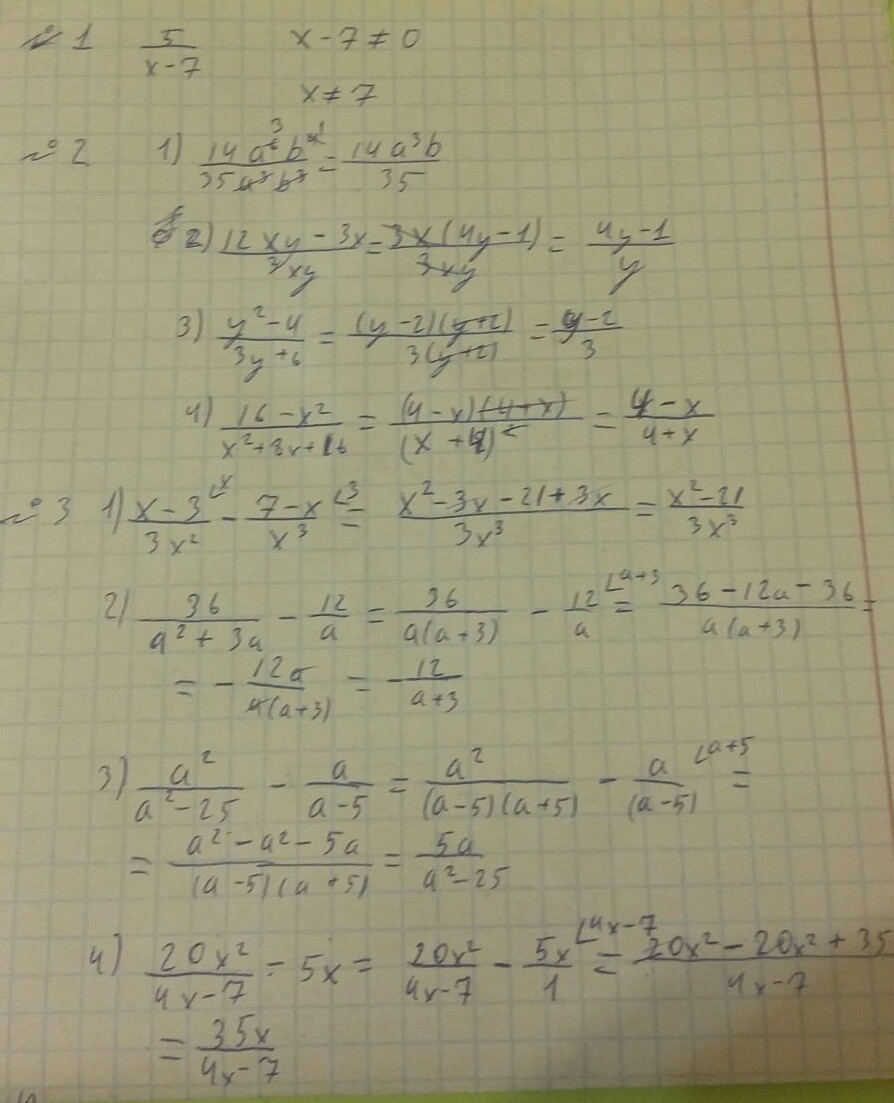 №1 5/(x-7) x-7≠0
x≠7
№2 1) 14a⁶b⁴/35a³b³ = 14a³b/35
2) (12xy-3x)/3xy = 3x(4y-1)/3xy = (4y-1)/y
3) (y²-4)/(3y+6) = (y-2)(y+2)/3(y+2) = (y-2)/3
4) (16-x²)/(x²+8x+16) = (4-x)(4+x)/(x+4)² = (4-x)/(4+x)
№3 1) (x-3)/3x² - (7-x)/x³ = (x²-3x-21+3x)/3x³ = (x²-21)/3x³
2) 36/(a²+3a) - 12/a = 36/a(a+3) - 12/a = (36-12a-36)/a(a+3) =
= -12a/a(a+3) = -12/(a+3)
3) a²/(a²-25) - a/(a-5) = a²/(a-5)(a+5) - a/(a-5) =
= (a²-a²-5a)/(a-5)(a+5) = 5a/(a²-25)
4) 20x²/(4x-7) - 5x = 20x²/(4x-7) - 5x/1 = (20x²-20x²+35/(4x-7)
= 35x/(4x-7)